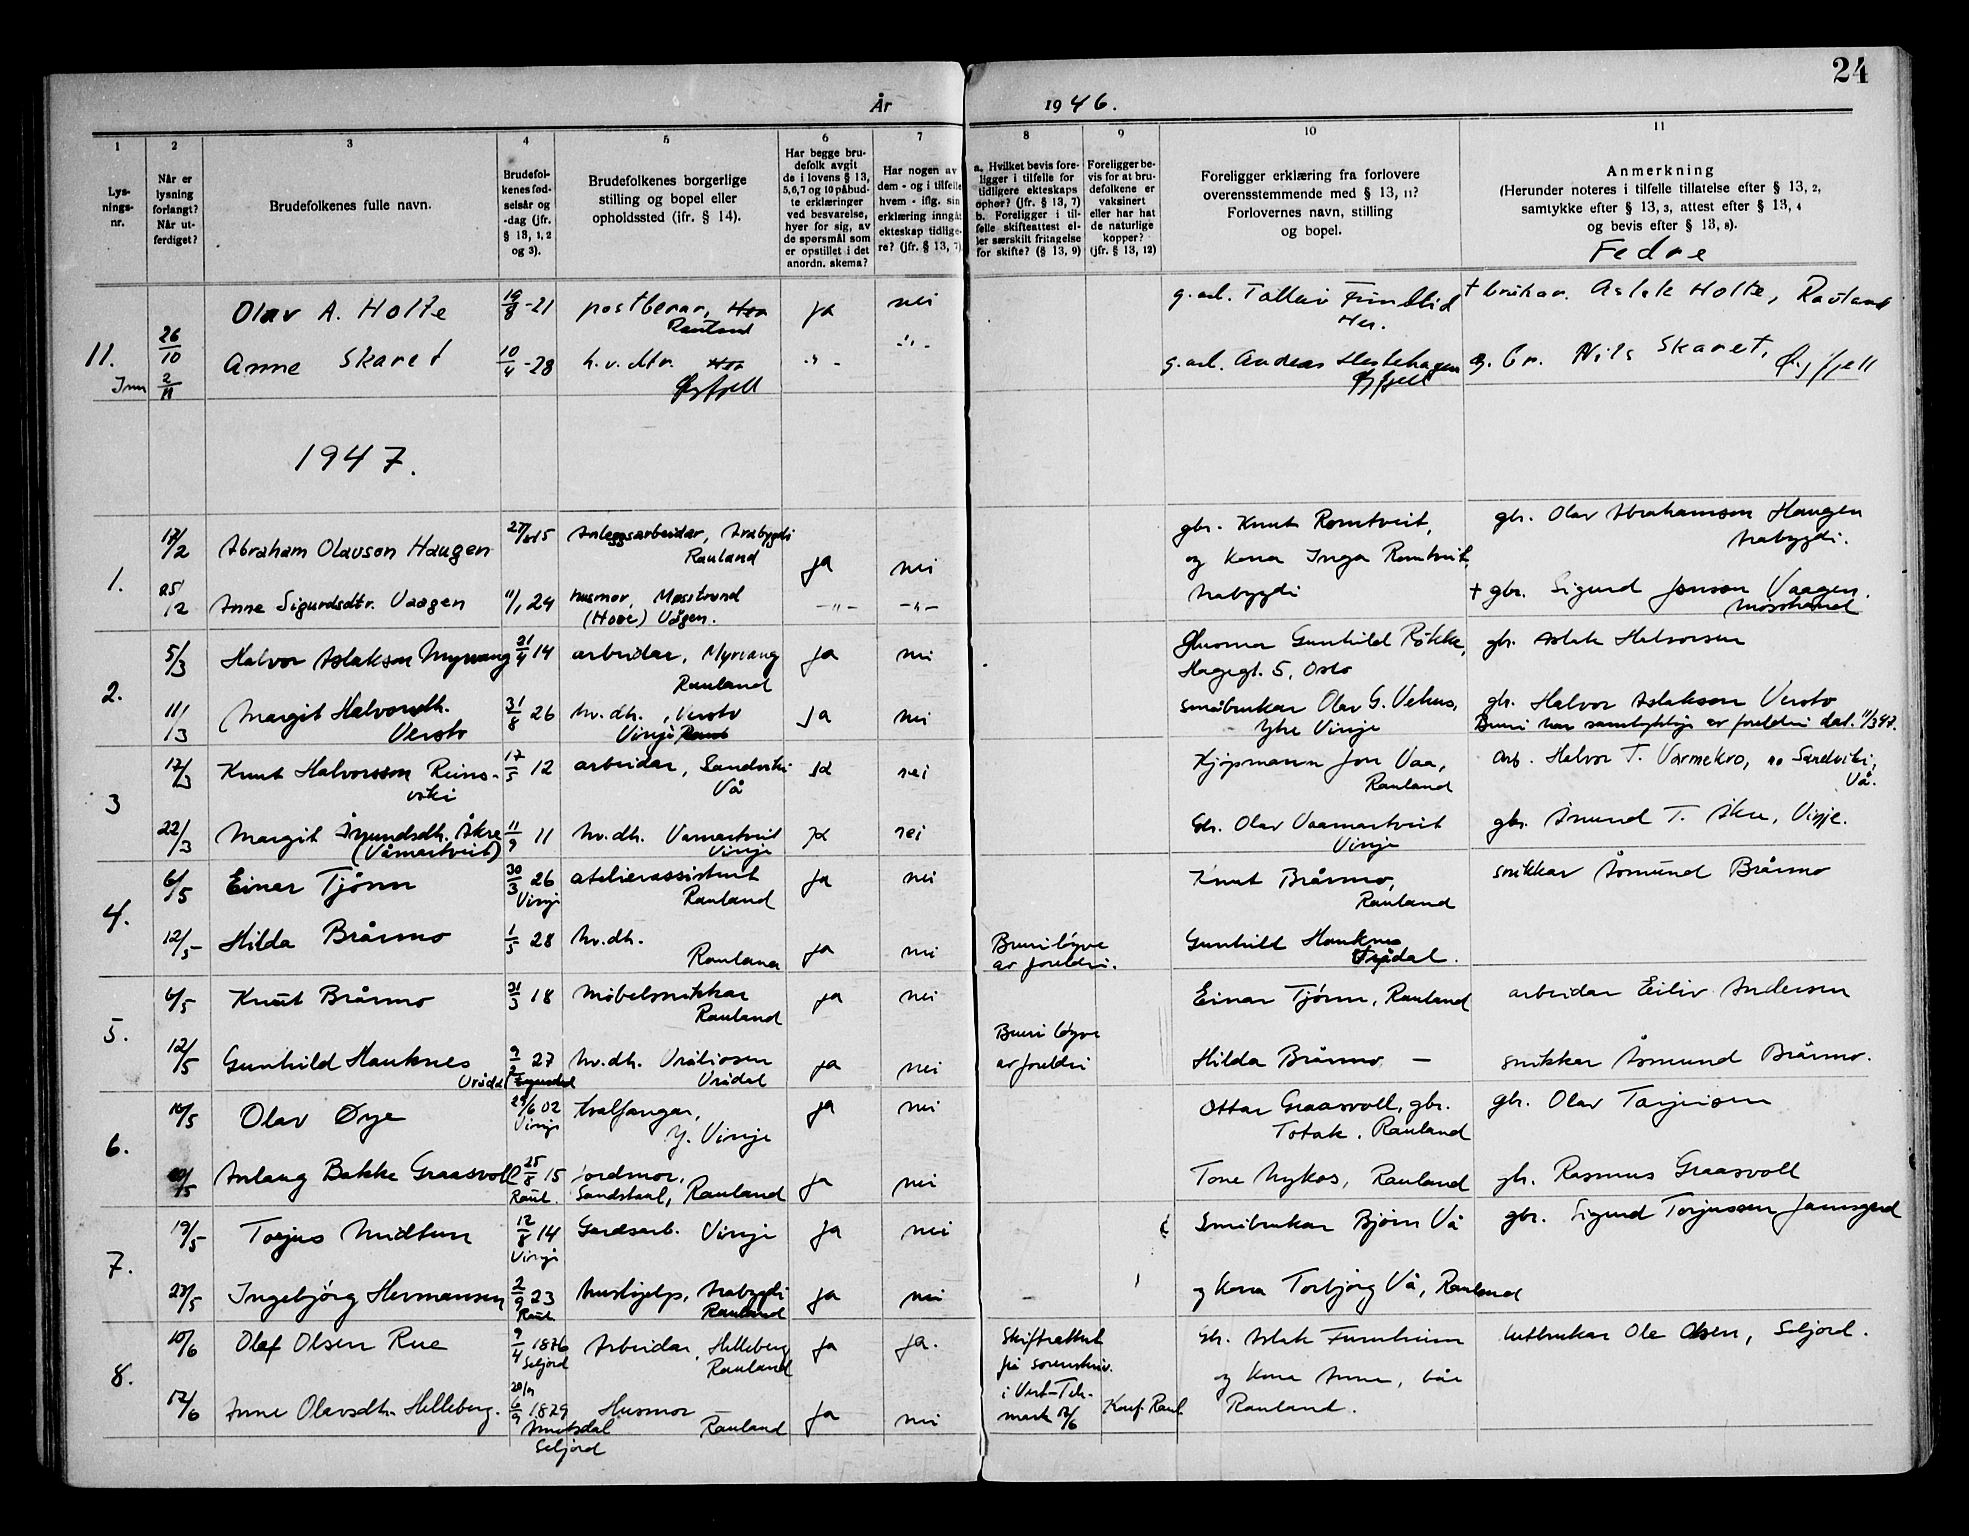 24
År 1946.
1
2
3
4
5
6
7
8
9
10
11
Lysningsnr.
Når er lysning forlangt? Når utferdiget?
Brudefolkenes fulle navn.
Brudefolkenes fødselsår og -dag (jfr. § 13, 1, 2 og 3).
Brudefolkenes borgerlige stilling og bopel eller opholdssted (jfr. § 14).
Har begge brudefolk avgit de i lovens § 13, 5, 6, 7 og 10 påbudte erklæringer ved besvarelse, hver for sig, av de spørsmål som er opstillet i det anordn. skema?
Har nogen av dem - og i tilfelle hvem - iflg. sin erklæring inngåt ekteskap tidligere? (jfr. § 13, 7)
a. Hvilket bevis foreligger i tilfelle for tidligere ekteskaps ophør? (jfr. § 13, 7)
b. Foreligger i tilfelle skifteattest eller særskilt fritagelse for skifte? (§ 13, 9)
Foreligger bevis for at brudefolkene er vaksinert eller har hat de naturlige kopper? (jfr. § 13, 12)
Foreligger erklæring fra forlovere overensstemmende med § 13, 11? Forlovernes navn, stilling og bopel.
Anmerkning
(Herunder noteres i tilfelle tillatelse efter § 13, 2, samtykke efter § 13, 3, attest efter § 13, 4 og bevis efter § 13, 8).
Fedre
11. 26/10 Olav A. Holte 19/8-21 postberar, Rauland ja nei + brukar. Aslak Holte, Rauland
2/11 Anne Skaret 10/4-28 h.v.dtr. Øyfjell -"- -"- g.arb. Andeas Heslehagen Øyfjell g. br. Nils Skaret, Øyfjell
1947.
1. 17/2 Abraham Olavson Haugen 15 Anleggsarbeidar, Arabygdi Rauland ja nei gbr. Knut Romtveit, gbr. Olav Abrahamson Haugen Arabygdi.
og kona Inga Romtveit,
25/2 Anne Sigurdsdtr. Vaagen 11/1 24 husmor, Møsstrond (Hove) Vågen. -"- -"- Arabygdi + gbr. Sigurd Jonson Vaagen. Møsstrond
2. 5/3 Halvor Aslakson Myrvang 21/4 14 arbeidar, Myrvang Rauland ja nei Gunhild Røkke, Hagegt. 5, Oslo gbr. Aslak Halvorsen
11/3 Margit Halvorsdtr. Versto 31/8 26 hv.dtr., Versto Vinje ja nei småbrukar Olav G. Vehus, Ytre Vinje gbr. Halvor Aslakson Versto
Bruri har samtykkje av foreldri dat. 11/3 47.
3 12/3 Knut Halvorsson Reinsvoki 17/5 12 arbeidar, Sandviki Vå ja nei Kjøpmann Jon Vaa, Rauland Arb. Halvor T. Varmekro, no Sandviki, Vå.
22/3 Margit Åmundsdtr. Åkre (Våmartveit) 11/9 11 hv.dtr. Vamartveit Vinje ja nei Gbr. Olav Vaamartveit Vinje gbr. Åmund T. Åkre, Vinje.
4. 6/5 Einar Tjønn 30/3 26 Vinje atelierassistent Rauland ja nei Knut Bråsmo, Rauland snikkar Åsmund Bråsmo
12/5 Hilda Bråsmo 1/5 28 hv.dtr. Rauland ja nei Bruri løyve av foreldri. Gunhild Hauknes
5. 6/5 Knut Bråsmo 21/3 18 Møbelsnikkar Rauland ja nei Einar Tjønn, Rauland arbeidar Eiliv Andersen
12/5 Gunhild Hauknes 9/2 27 Vrådal hv.dtr. Vråliosen Vrådal ja nei Bruri løyve av foreldri Hilda Bråsmo — snikkar Åsmund Bråsmo.
6. 10/5 Olav Øye 29/6 02 Vinje kvalfangar, Y. Vinje ja nei Ottar Graasvoll, gbr. Totak. Rauland gbr. Olav Tarjeison
20/5 Anlaug Bakke Graasvoll 25/8 15 Raul. jordmor, Sandstaul, Rauland ja nei Tone Nykos, Rauland gbr. Rasmus Graasvoll
7. 19/5 Torjus Midtun 12/8 14 Vinje Gardsarb. Vinje ja nei Småbrukar Bjørn Vå gbr. Sigurd Torjussen Jamsgard
23/5 Ingebjörg Hermansen 2/9 23 Raul. hushjelp, Arabygdi Rauland ja nei og kona Torbjørg Vå, Rauland
8. 10/6 Olaf Olsen Rue 9/4 1876 Seljord Arbeidar, Helleberg Rauland ja ja. Skifteattest frå sorenskriv. i Vest-Telemark 12/6 Gbr. Aslak Furuheim gbrukar Ole Olsen, Seljord.
12/6 Anne Olavsdtr. Helleberg. 6/9 1879 Åmotsdal Seljord Husmor Rauland ja nei Konf. Raul. og kona Anne, båe Rauland.